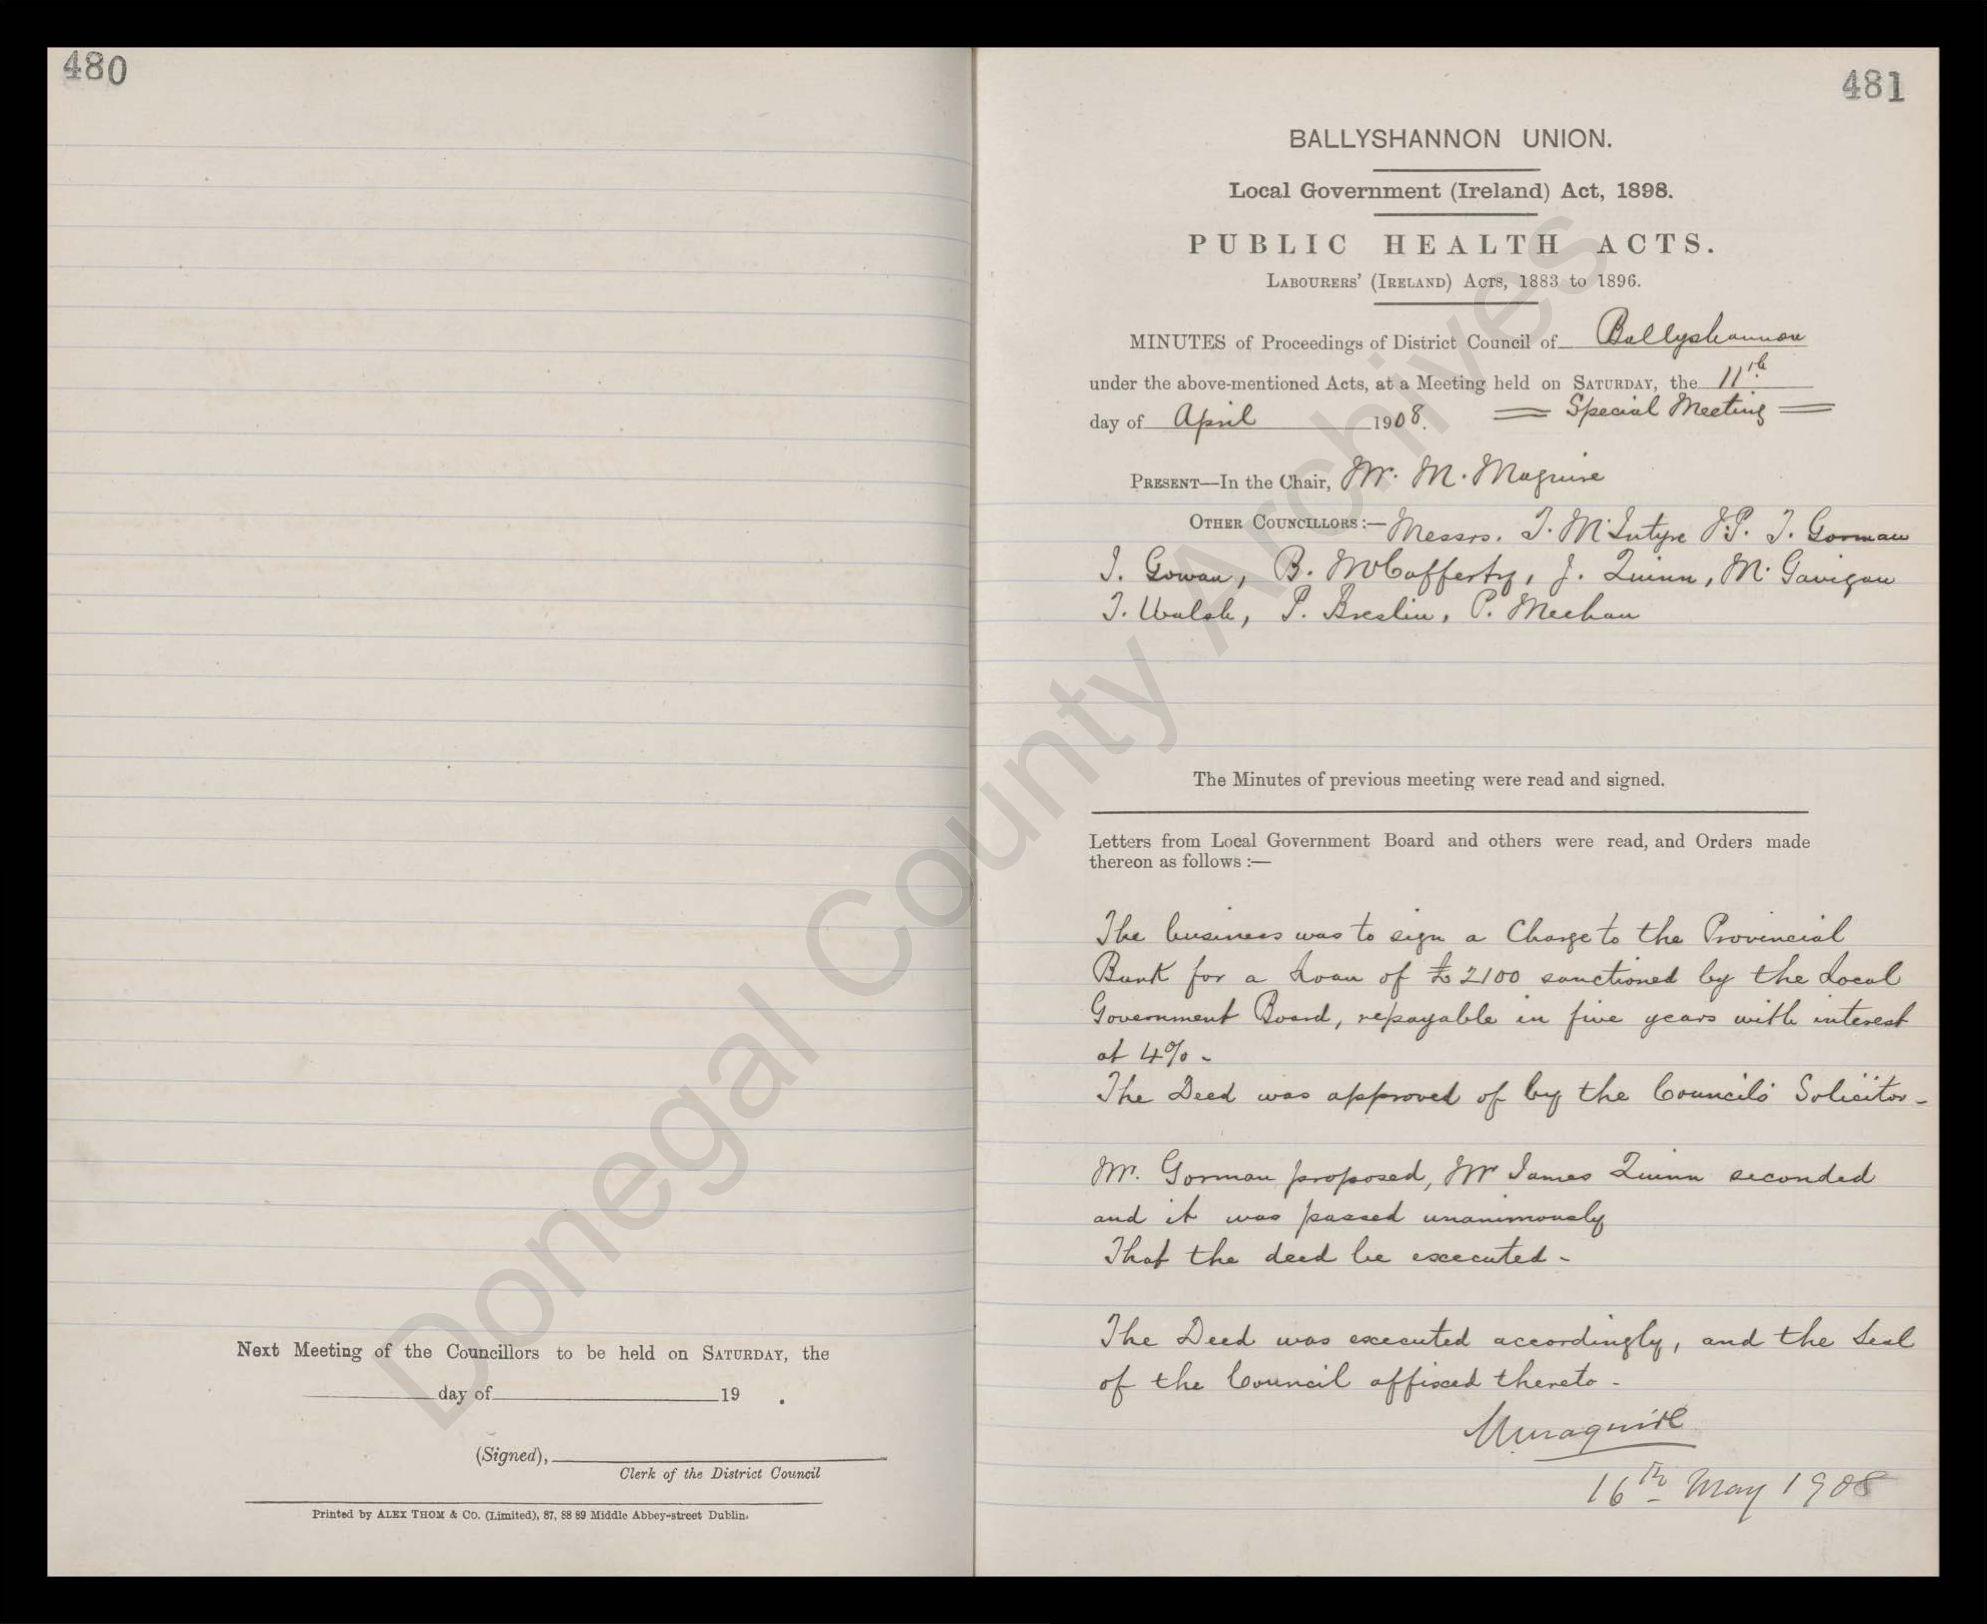 480
Next Meeting of the Councillors to be held on SATURDAY, the
day of 19 .
(Signed),
Clerk of the District Council
Printed by ALEX THOM & CO. (Limited), 87, 88 89 Middle Abbey-street Dublin.
481
BALLYSHANNON UNION.
Local Government (Ireland) Act, 1898.
PUBLIC HEALTH ACTS.
LABOURERS' (IRELAND) ACTS, 1883 to 1896.
MINUTES of Proceedings of District Council of Ballyshannon
under the above-mentioned Acts, at a Meeting held on SATURDAY, the 11th
day of April 1908. = Special Meeting =
PRESENT—In the Chair, Mr. M. Maguire
OTHER COUNCILLORS :— Messrs. T. McIntyre J.P. T. Gorman
J. Gowan, B. McCafferty, J. Quinn, M. Gavigan
T. Walsh, P. Breslin, P. Meehan
The Minutes of previous meeting were read and signed.
Letters from Local Government Board and others were read, and Orders made
thereon as follows :—
The business was to sign a Charge to the Provincial
Bank for a Loan of £2100 sanctioned by the Local
Government Board, repayable in five years with interest
at 4% -
The Deed was approved of by the Council's Solicitor -
Mr. Gorman proposed, Mr James Quinn seconded
and it was passed unanimously
That the deed be executed -
The Deed was executed accordingly, and the Seal
of the Council affixed thereto -
MMaguire
16th May 1908
Donegal County Archives